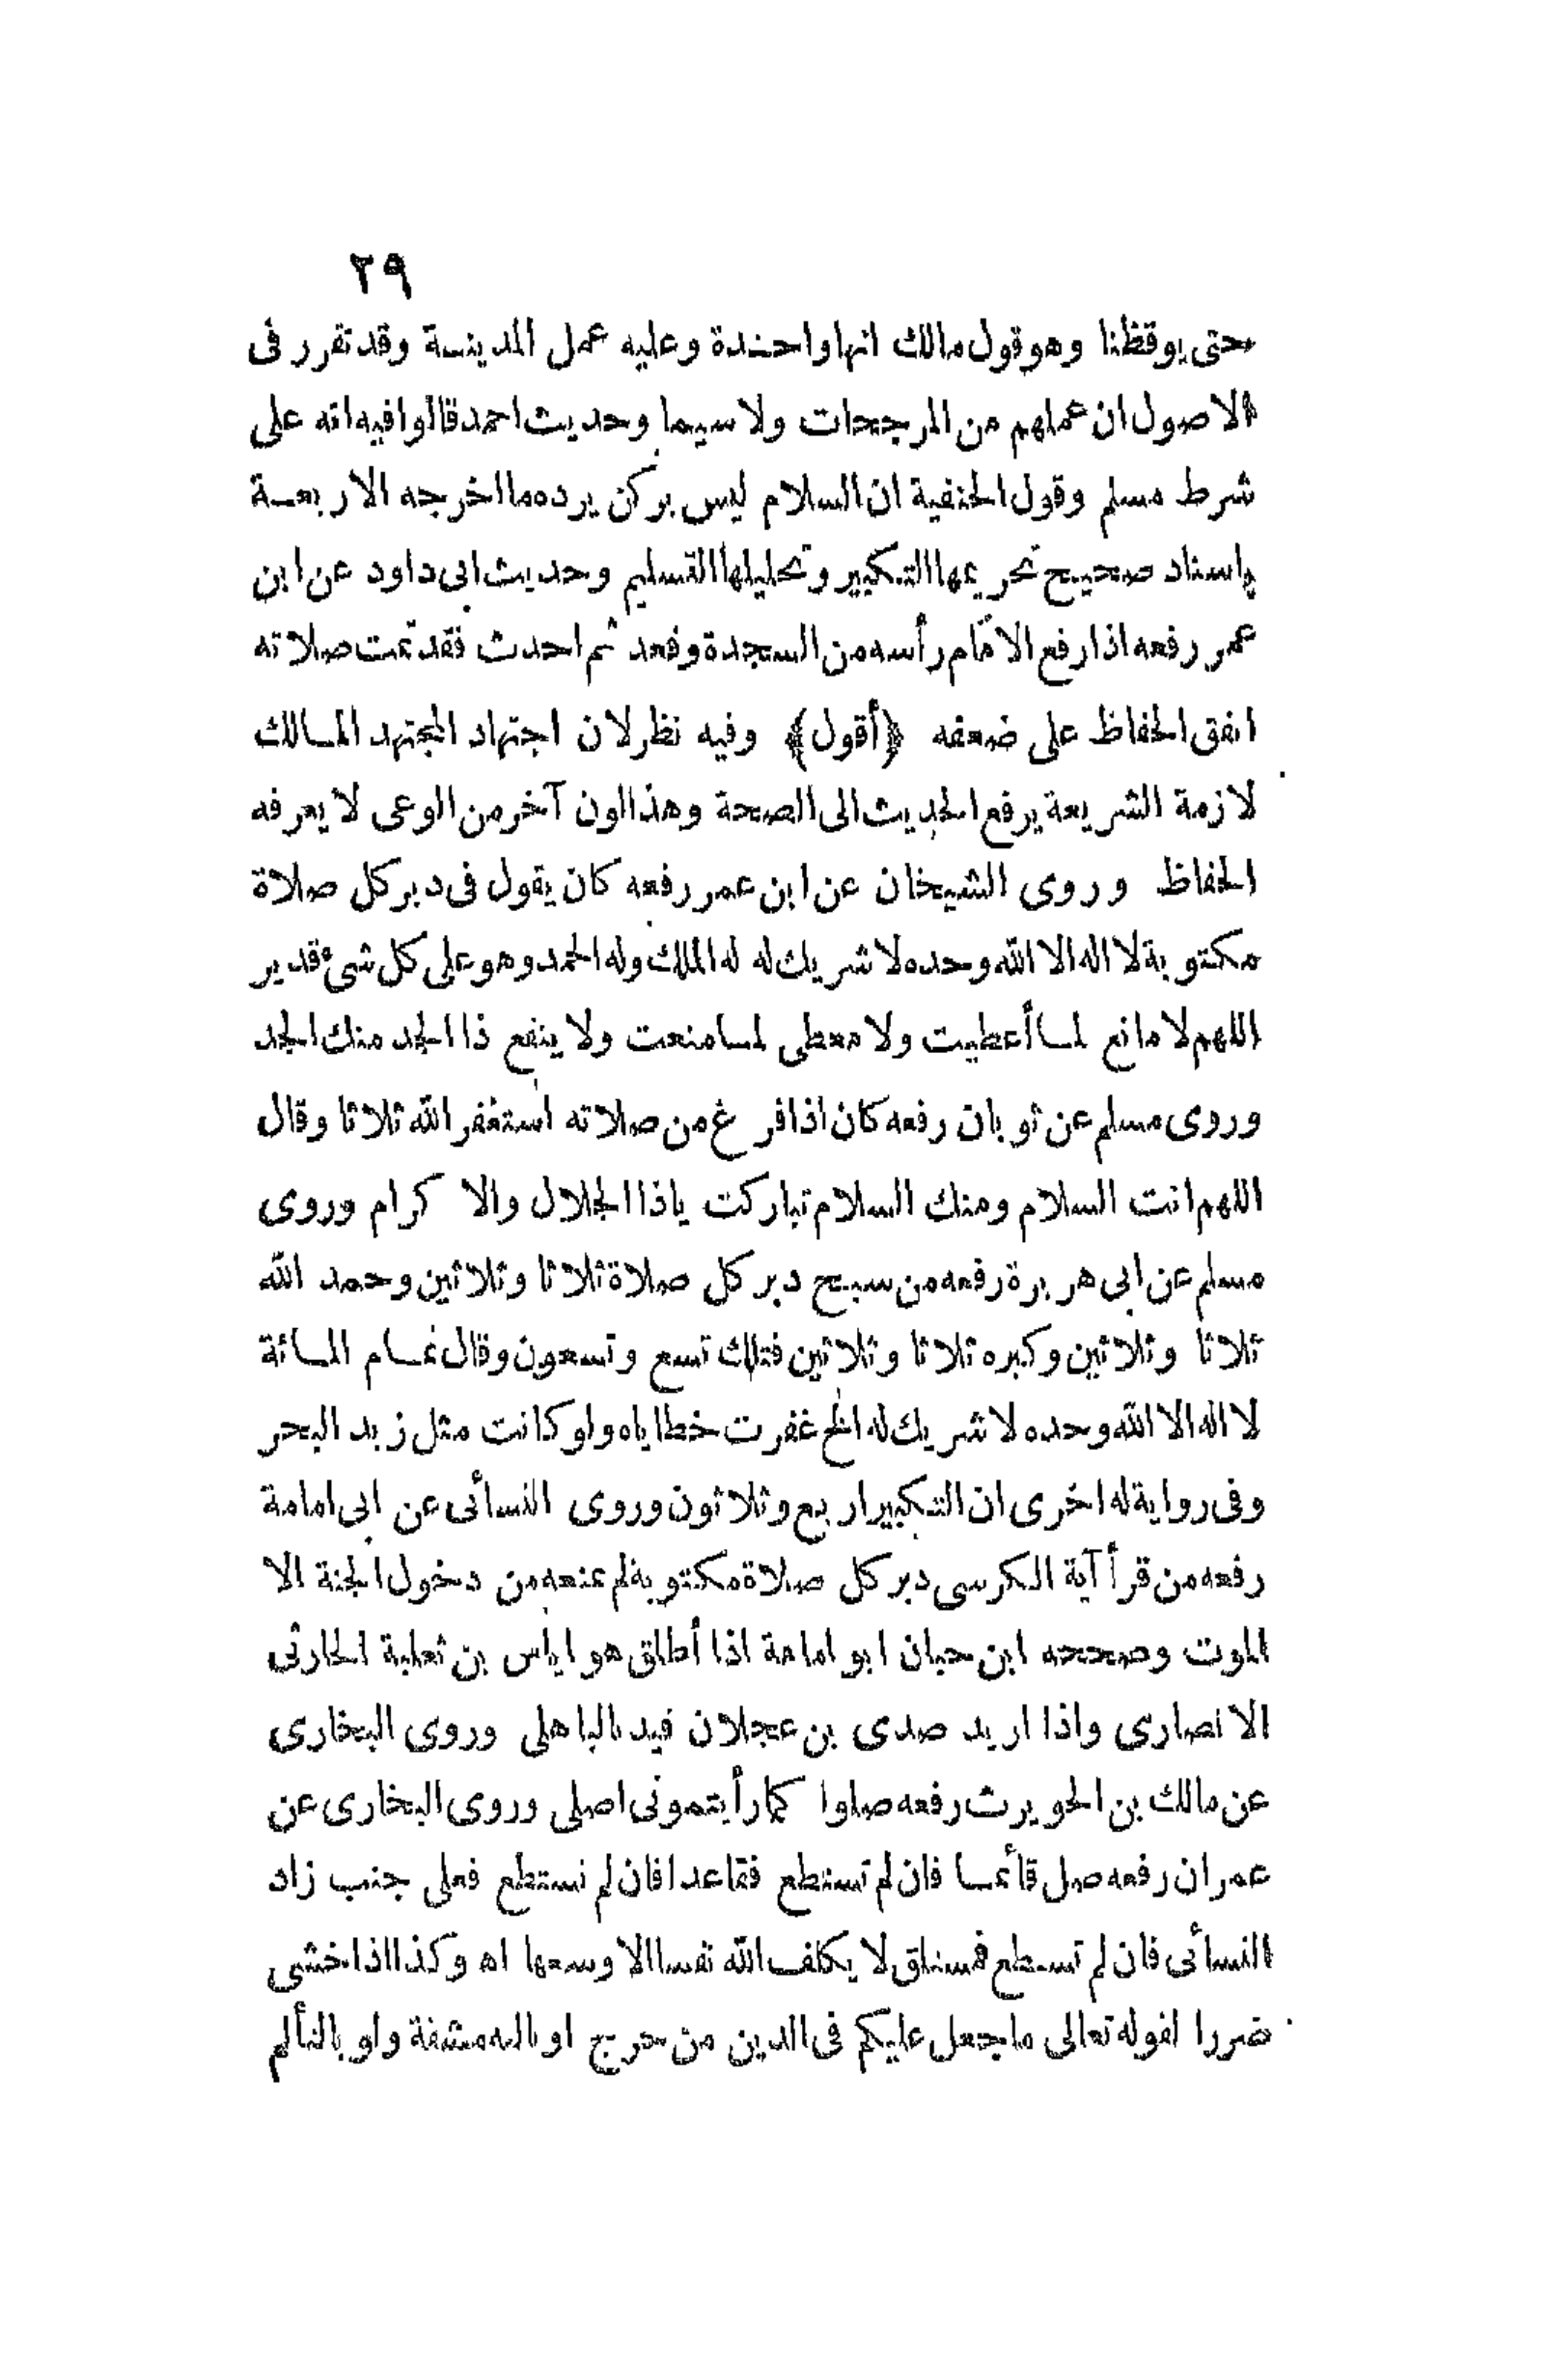 ٢٩
حتى يوقظنا وهو قول مالك انها واحدة وعليه عمل المدينة وقد تقرر فى
الاصول ان عملهم من المرجحات ولا سيما وحديث احمد قالوا فيه انه على
شرط مسلم وقول الحنفية ان السلام ليس بركن يرده ما اخرجه الاربعة
باسناد صحيح تحريمها التكبير وتحليلها التسليم وحديث ابى داود عن ابن
عمر رفعه اذا رفع الامام رأسه من السجدة وقعد ثم احدث فقد تمت صلاته
اتفق الحفاظ على ضعفه ﴿أقول﴾ وفيه نظر لان اجتهاد المجتهد المالك
لازمة الشريعة يرفع الحديث الى الصحة وهذا لون آخر من الوعى لا يعرفه
الحفاظ وروى الشيخان عن ابن عمر رفعه كان يقول فى دبر كل صلاة
مكتوبة لا اله الا الله وحده لا شريك له له الملك وله الحمد وهو على كل شىء قدير
اللهم لا مانع لما أعطيت ولا معطى لما منعت ولا ينفع ذا الجد منك الجد
وروى مسلم عن ثوبان رفعه كان اذا فرغ من صلاته استغفر الله ثلاثا وقال
اللهم انت السلام ومنك السلام تباركت ياذا الجلال والاكرام وروى
مسلم عن ابى هريرة رفعه من سبح دبر كل صلاة ثلاثا وثلاثين وحمد الله
ثلاثا وثلاثين وكبره ثلاثا وثلاثين فتلك تسع وتسعون وقال تمام المائة
لا اله الا الله وحده لا شريك له الخ غفرت خطاياه ولو كانت مثل زبد البحر
وفى رواية له اخرى ان التكبير اربع وثلاثون وروى النسائى عن ابى امامة
رفعه من قرأ آية الكرسى دبر كل صلاة مكتوبة لم يمنعه من دخول الجنة الا
الموت وصححه ابن حبان ابو امامة اذا أطلق هو اياس بن ثعلبة الحارثى
الانصارى واذا اريد صدى بن عجلان قيد بالباهلى وروى البخارى
عن مالك بن الحويرث رفعه صلوا كما رأيتمونى اصلى وروى البخارى عن
عمران رفعه صل قائما فان لم تستطع فقاعدا فان لم تستطع فعلى جنب زاد
النسائى فان لم تسطع فمستلق لا يكلف الله نفسا الا وسعها اه وكذا اذا خشى
ضررا لقوله تعالى ما جعل عليكم فى الدين من حرج او ناله مشقة ولو بالتألم